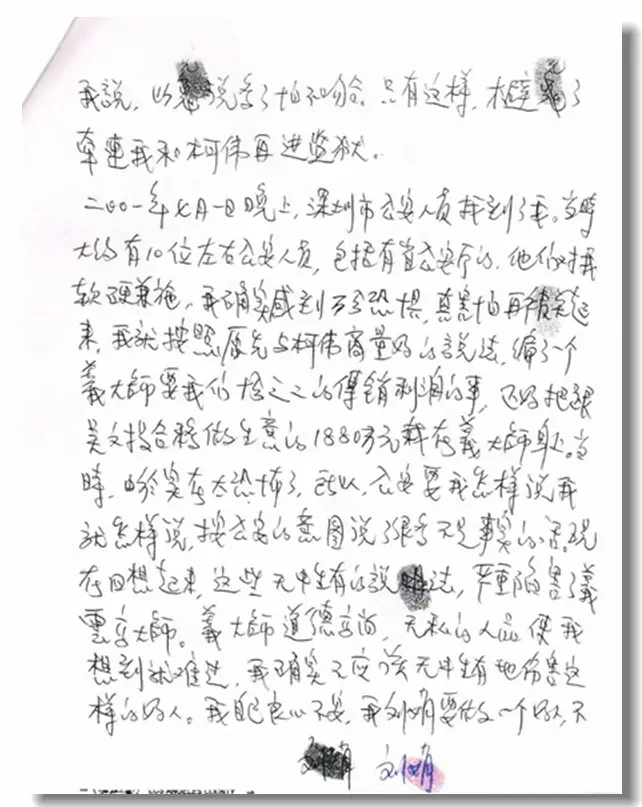 我說，以免說多了怕不吻合。只有这样，才避免了
牵連我和柯伟再进监狱。
二〇〇一年七月一日晚上，深圳市公安人员找到了我。当時
大约有10位左右公安人员，包括有省公安厅的。他们对我
软硬兼施，我确实感到万分恐惧，真害怕再被关起
来，我就按照原先与柯偉商量好的說法，編了一个
義大師要我们 的傳銷利润的事，还好把跟
吴文投合夥做生意的1880万元栽在義大師身上。当
時，由於实在太恐怖了，所以，公安要我怎样说我
就怎样说，按公安的意图说了很多不是事实的话。现
在回想起来，这些无中生有的說法，严重陷害了義
雲高大師。義大師道德高尚，无私的人品使我
想到就难过，我确实不应该无中生有地伤害这
样的好人。我自己良心不安，我刘娟要做一个好人，不
刘娟 刘娟